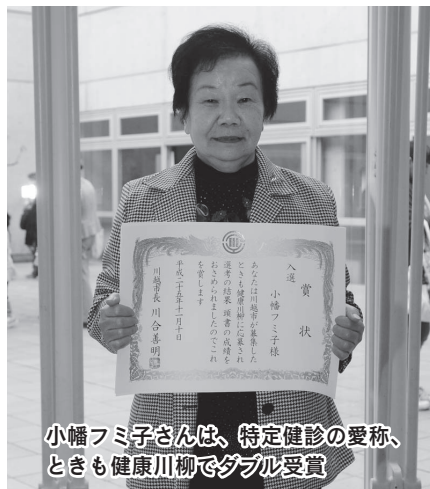 賞状
入選
小幡フミ子様
あなたは川越市が募集した
ときも健康川柳に応募され
選考の結果頭書の成績を
おさめられましたのでこれ
を賞します
平成二十五年十一月十日
川越市長 川合善明
小幡フミ子さんは、特定健診の愛称、
ときも健康川柳でダブル受賞